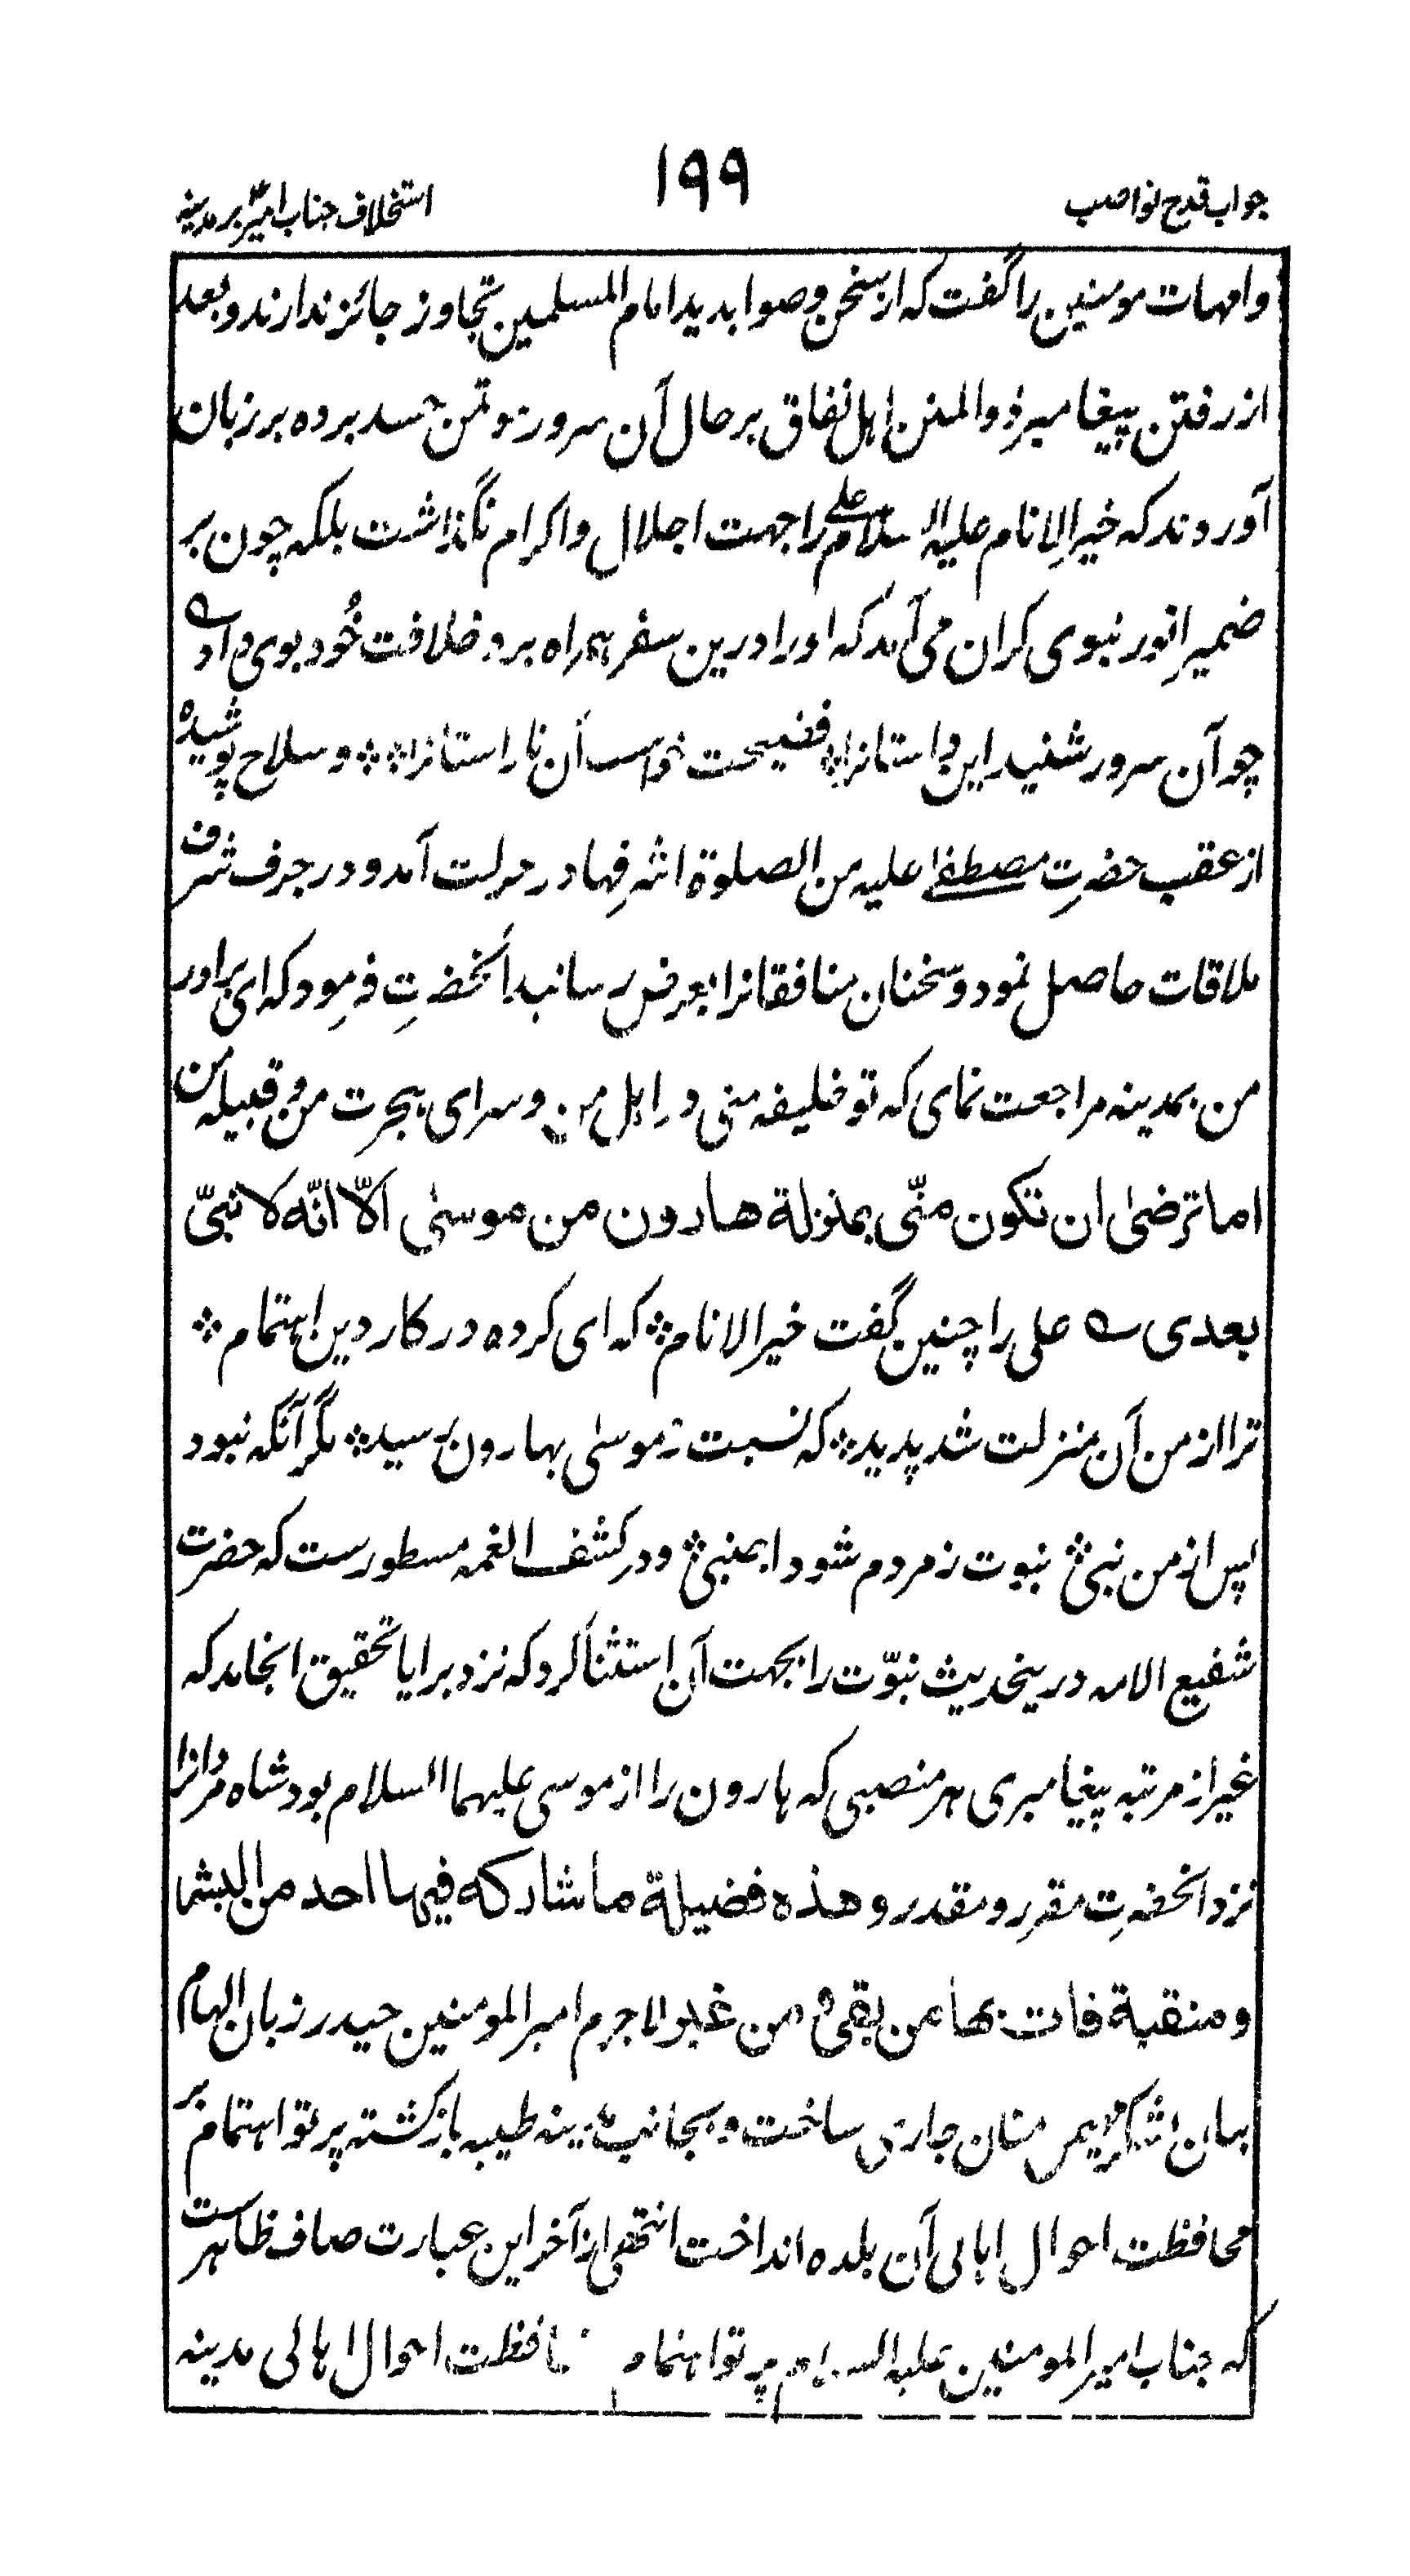 جواب قدح نواصب
۱۹۹
استخلاف جناب امیرؑ بر مدینہ
وامہات مومنین را گفت کہ از سخن وصوابدید امام المسلمین تجاوز جائز ندارند وبعد
از رفتن پیغامبر ذو المنن اہل نفاق بر حال آن سرور مؤتمن حسد بردہ بر زبان
آوردند کہ خیر الانام علیہ السلام علی را جہت اجلال واکرام نگذاشت بلکہ چون بر
ضمیرِ انور نبوی گران می آمد کہ اورا درین سفر ہمراہ برد خلافت خُود بوی داد ؎
چو آن سرور شنید این داستانرا ؞ فضیحت خواست آن ناراستانرا ؞؞ وسلاح پوشیدہ
از عقب حضرتِ مصطفےٰ علیہ من الصلوۃ اشرفہا در حرکت آمد ودر جرف شرف
ملاقات حاصل نمود وسخنان منافقانرا بعرض رسانید آنحضرتِ فرمود کہ ای برادر
من بمدینہ مراجعت نمای کہ تو خلیفہ منی در اہل من وسرای ہجرت من وقبیلہ من
اما ترضیٰ ان تکون منّی بمنزلة هارون من موسیٰ الّا انّه لا نبیّ
بعدی ؎ علی را چنین گفت خیر الانام ؞ کہ ای کردہ در کار دین اہتمام ؞
ترا از من آن منزلت شد پدید ؞ کہ نسبت ز موسٰی بہارون رسید ؞ مگر آنکہ نبود
پس از من نبی ؞ نبوت ز مردم شود اجنبی ؞ ودر کشف الغمہ مسطورست کہ حضرت
شفیع الامہ درینحدیث نبوّت را بجہت آن استثنا کرد کہ نزد برایا تحقیق انجامد کہ
غیر از مرتبہ پیغامبری ہر منصبی کہ ہارون را از موسی علیہما السلام بود شاہ مردانرا
نزد آنحضرتِ مقرر ومقدر وهذه فضیلة ما شارکه فیها احد من البشر
ومنقبة فات بها من بقی و من غبر لا جرم امیر المومنین حیدر زبان الہام
بیان بشکر کریم منان جاری ساخت وبجانب مدینہ طیبہ بازگشتہ پرتو اہتمام بر
محافظت احوال اہالی آن بلدہ انداخت انتہٰی از آخر این عبارت صاف ظاہرست
کہ جناب امیر المومنین علیہ السلام پرتو اہتمام محافظت احوال اہالی مدینہ